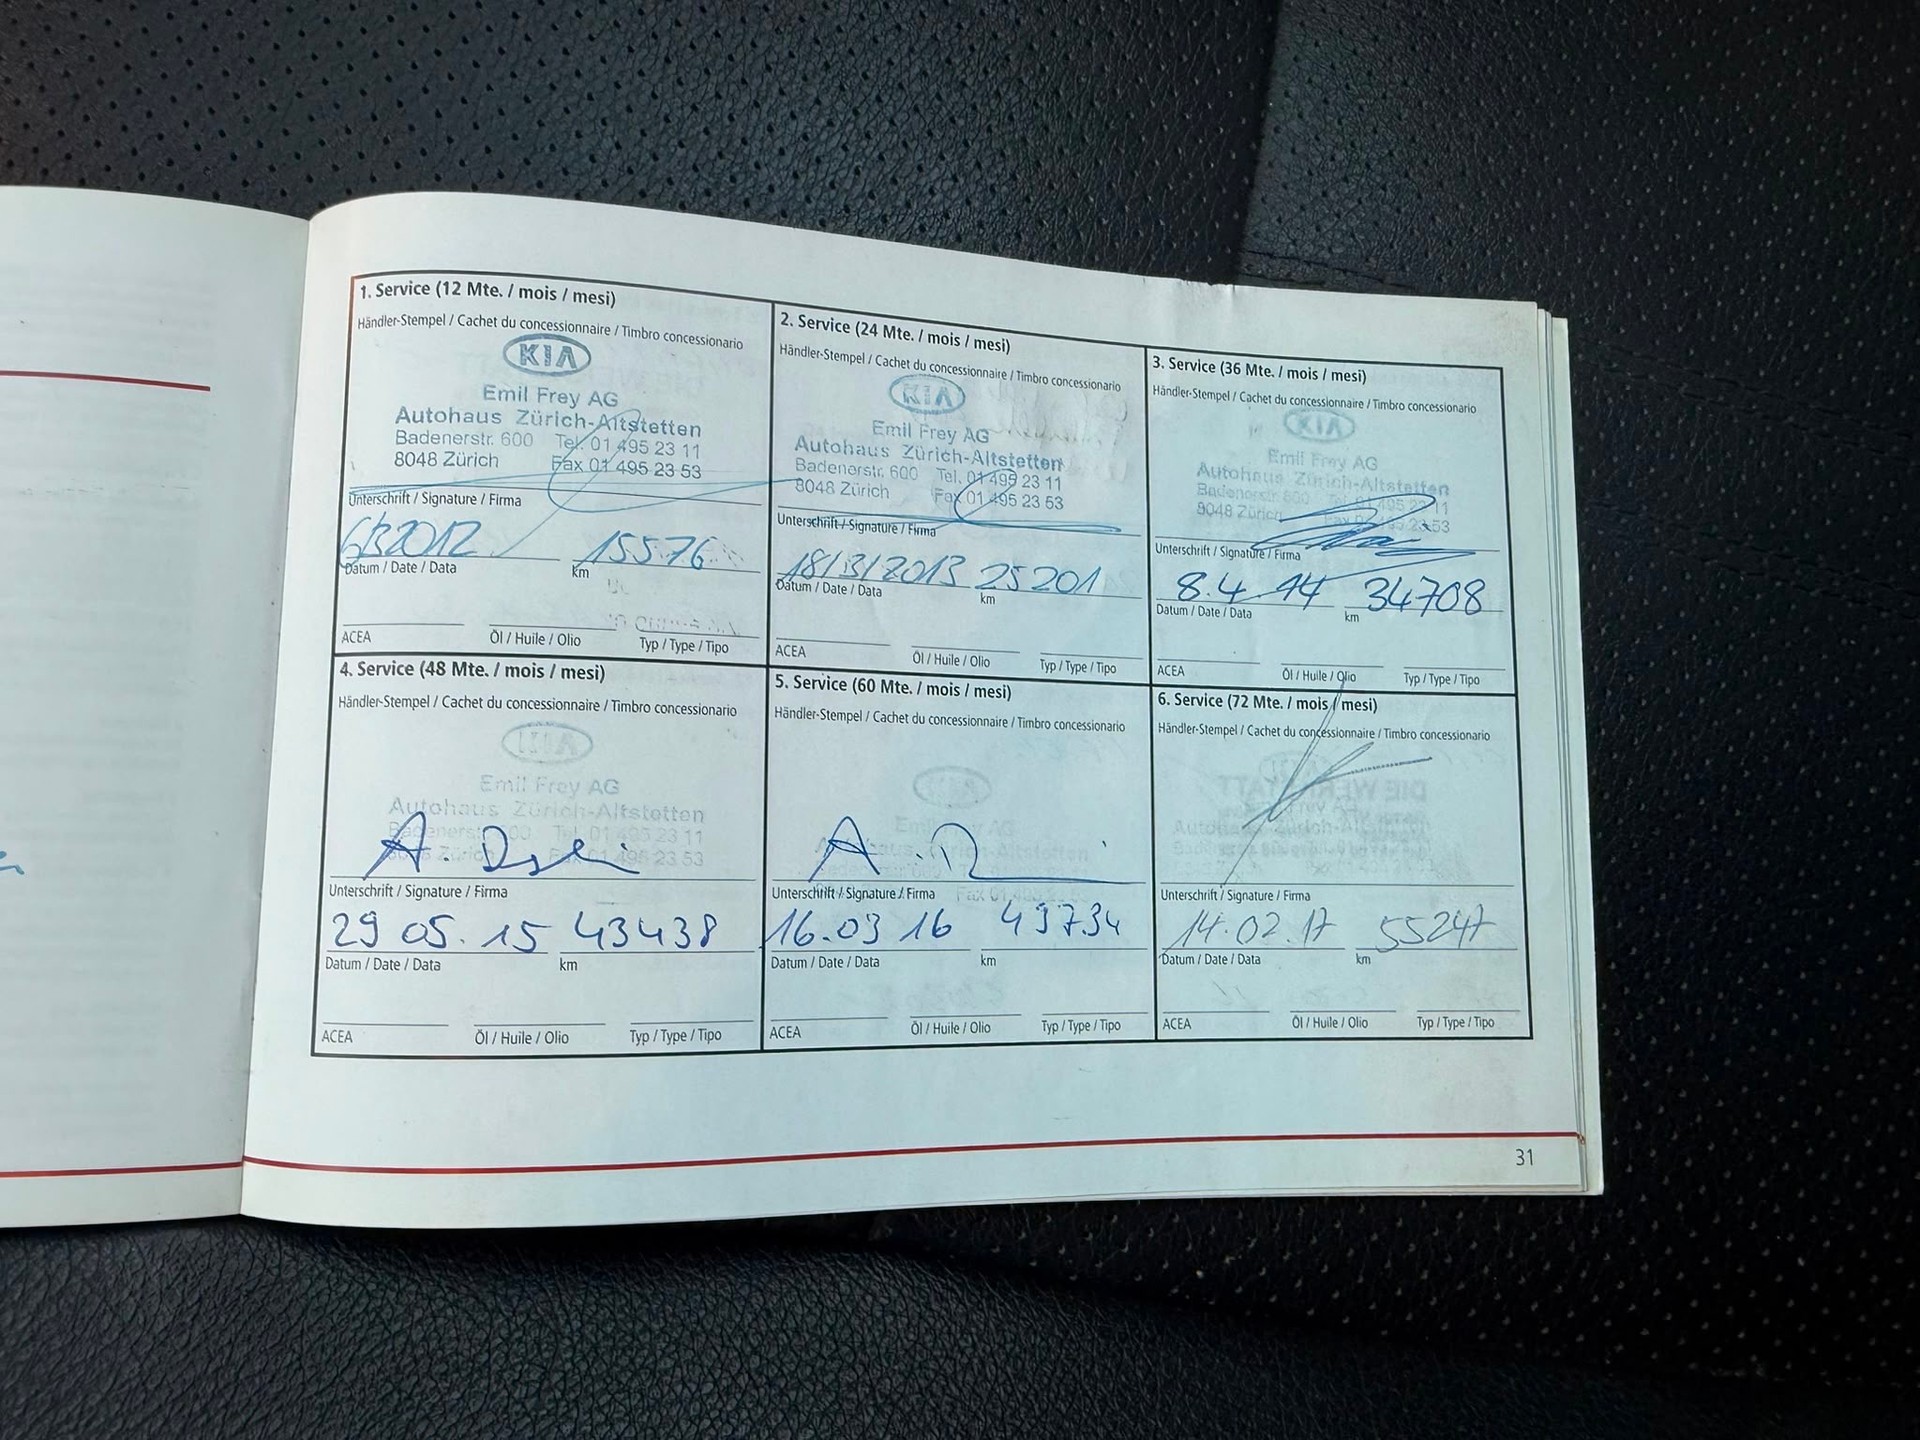 1. Service (12 Mte. / mois / mesi)
Händler-Stempel / Cachet du concessionnaire / Timbro concessionario
KIA
Emil Frey AG
Autohaus Zürich-Altstetten
Badenerstr. 600 Tel. 01 495 23 11
8048 Zürich Fax 01 495 23 53
Unterschrift / Signature / Firma
6/3 2012 15576
Datum / Date / Data km
ACEA Öl / Huile / Olio Typ / Type / Tipo
2. Service (24 Mte. / mois / mesi)
Händler-Stempel / Cachet du concessionnaire / Timbro concessionario
KIA
Emil Frey AG
Autohaus Zürich-Altstetten
Badenerstr. 600 Tel. 01 495 23 11
8048 Zürich Fax 01 495 23 53
Unterschrift / Signature / Firma
18/3/2013 25201
Datum / Date / Data km
ACEA Öl / Huile / Olio Typ / Type / Tipo
3. Service (36 Mte. / mois / mesi)
Händler-Stempel / Cachet du concessionnaire / Timbro concessionario
KIA
Emil Frey AG
Autohaus Zürich-Altstetten
Badenerstr. 600 Tel. 01 495 23 11
8048 Zürich Fax 01 495 23 53
Unterschrift / Signature / Firma
8.4.14 34708
Datum / Date / Data km
ACEA Öl / Huile / Olio Typ / Type / Tipo
4. Service (48 Mte. / mois / mesi)
Händler-Stempel / Cachet du concessionnaire / Timbro concessionario
KIA
Emil Frey AG
Autohaus Zürich-Altstetten
Badenerstr. 600 Tel. 01 495 23 11
8048 Zürich Fax 01 495 23 53
Unterschrift / Signature / Firma
29 05. 15 43438
Datum / Date / Data km
ACEA Öl / Huile / Olio Typ / Type / Tipo
5. Service (60 Mte. / mois / mesi)
Händler-Stempel / Cachet du concessionnaire / Timbro concessionario
Emil Frey AG
Autohaus Zürich-Altstetten
Unterschrift / Signature / Firma
16.03 16
Datum / Date / Data km
ACEA Öl / Huile / Olio Typ / Type / Tipo
6. Service (72 Mte. / mois / mesi)
Händler-Stempel / Cachet du concessionnaire / Timbro concessionario
Autohaus Zürich-Altstetten
Unterschrift / Signature / Firma
14.02.17 55247
Datum / Date / Data km
ACEA Öl / Huile / Olio Typ / Type / Tipo
31